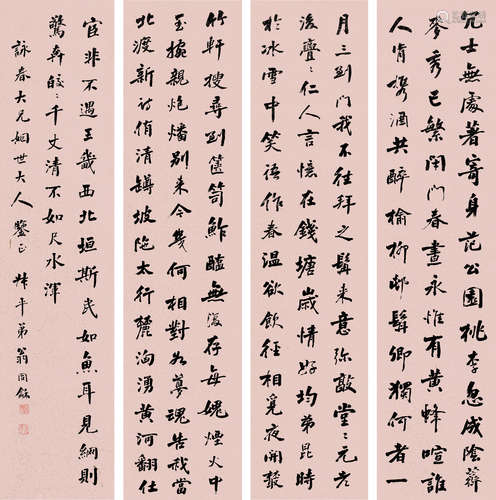 兀士無處著寄身范公園桃李忽成陰薺
麥秀已繁閉門春晝永惟有黃蜂喧誰
人肯攜酒共醉榆柳邨髯卿獨何者一
月三到門我不往拜之髯來意弥敦堂々元老
後亹々仁人言憶在錢塘歲情好均弟昆時
於冰雪中笑語作春溫欲飲徑相覓夜開叢
竹軒搜尋到篋笥鮓醢無復存每媿煙火中
玉捥親炮燔別來今幾何相對如夢魂告我當
北渡新詩侑清罇坡陁太行麓洶湧黃河翻仕
宦非不遇王畿西北垣斯民如魚耳見網則
驚奔皎々千丈清不如尺水渾
詠春大兄姻世大人鑒正 叔平弟翁同龢